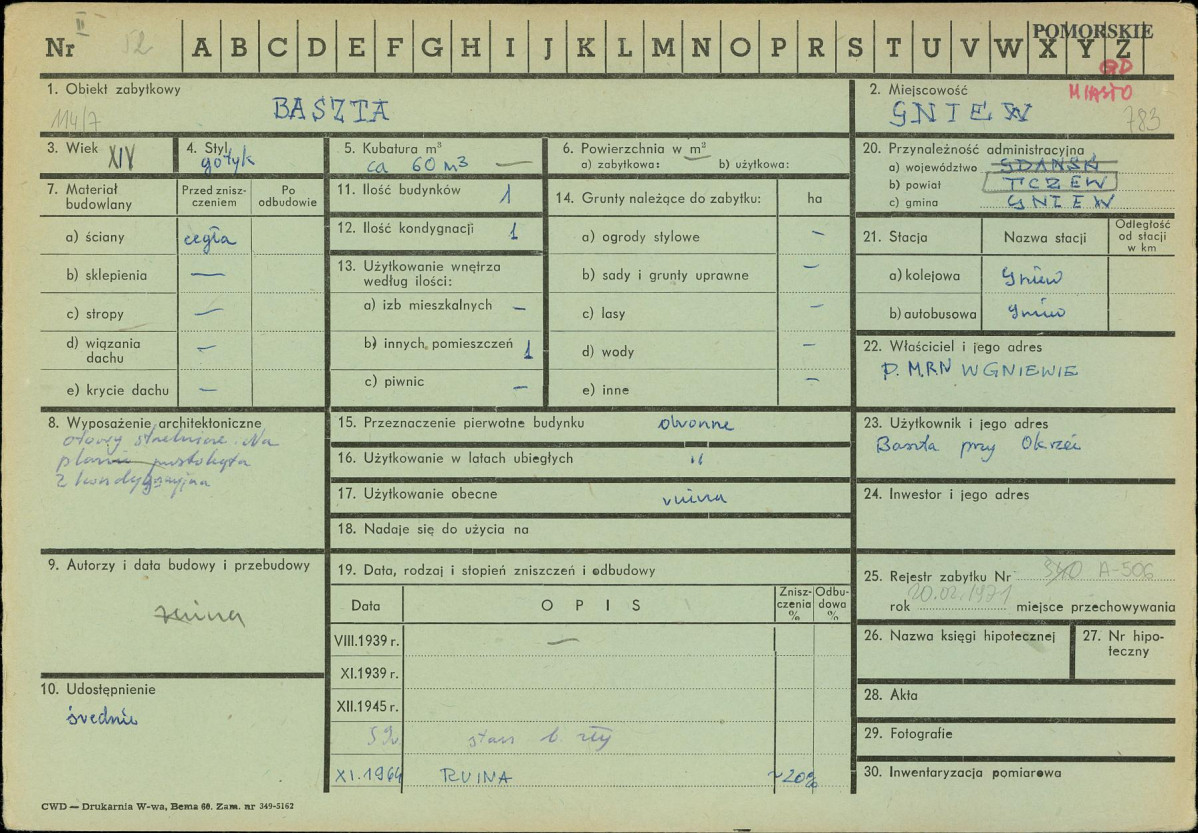 POMORSKIE
Nr II 52 A B C D E F G H I J K L M N O P R S T U V W X Y Z
GD
MIASTO
1. Obiekt zabytkowy
BASZTA
114/7
2. Miejscowość
GNIEW
783
3. Wiek XIV
4. Styl
gotyk
5. Kubatura m³
ca 60 m3 —
6. Powierzchnia w m²
a) zabytkowa: — b) użytkowa:
7. Materiał budowlany
Przed zniszczeniem
Po odbudowie
a) ściany cegła
b) sklepienia —
c) stropy —
d) wiązania dachu —
e) krycie dachu —
11. Ilość budynków 1
12. Ilość kondygnacji 1
13. Użytkowanie wnętrza według ilości:
a) izb mieszkalnych —
b) innych pomieszczeń 1
c) piwnic —
14. Grunty należące do zabytku: ha
a) ogrody stylowe —
b) sady i grunty uprawne —
c) lasy —
d) wody —
e) inne —
20. Przynależność administracyjna
a) województwo GDAŃSK
b) powiat TCZEW
c) gmina GNIEW
21. Stacja
Nazwa stacji
Odległość od stacji w km
a) kolejowa Gniew
b) autobusowa Gniew
22. Właściciel i jego adres
P. MRN W GNIEWIE
8. Wyposażenie architektoniczne
otwory strzelnicze. Na
planie prostokąta
2 kondygnacyjna
15. Przeznaczenie pierwotne budynku obronne
16. Użytkowanie w latach ubiegłych "
17. Użytkowanie obecne ruina
18. Nadaje się do użycia na
23. Użytkownik i jego adres
Baszta przy Okrzei
24. Inwestor i jego adres
9. Autorzy i data budowy i przebudowy
10. Udostępnienie
średnie
19. Data, rodzaj i stopień zniszczeń i odbudowy
Data
OPIS
Zniszczenia %
Odbudowa %
VIII.1939 r. —
XI.1939 r.
XII.1945 r.
59r stan b. zły
XI.1964 RUINA ~20%
25. Rejestr zabytku Nr 340 A-506
rok 20.02.1971 miejsce przechowywania
26. Nazwa księgi hipotecznej
27. Nr hipoteczny
28. Akta
29. Fotografie
30. Inwentaryzacja pomiarowa
CWD — Drukarnia W-wa, Bema 60. Zam. nr 349-5162